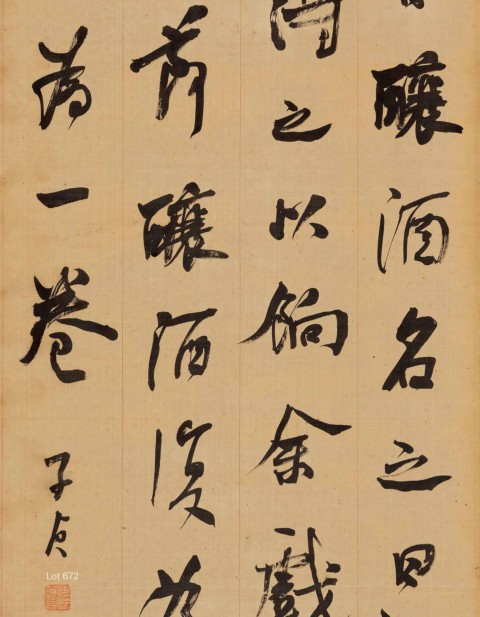 釀酒名之曰
得之以餉余戲
節釀酒復
為一卷
子貞
Lot 672